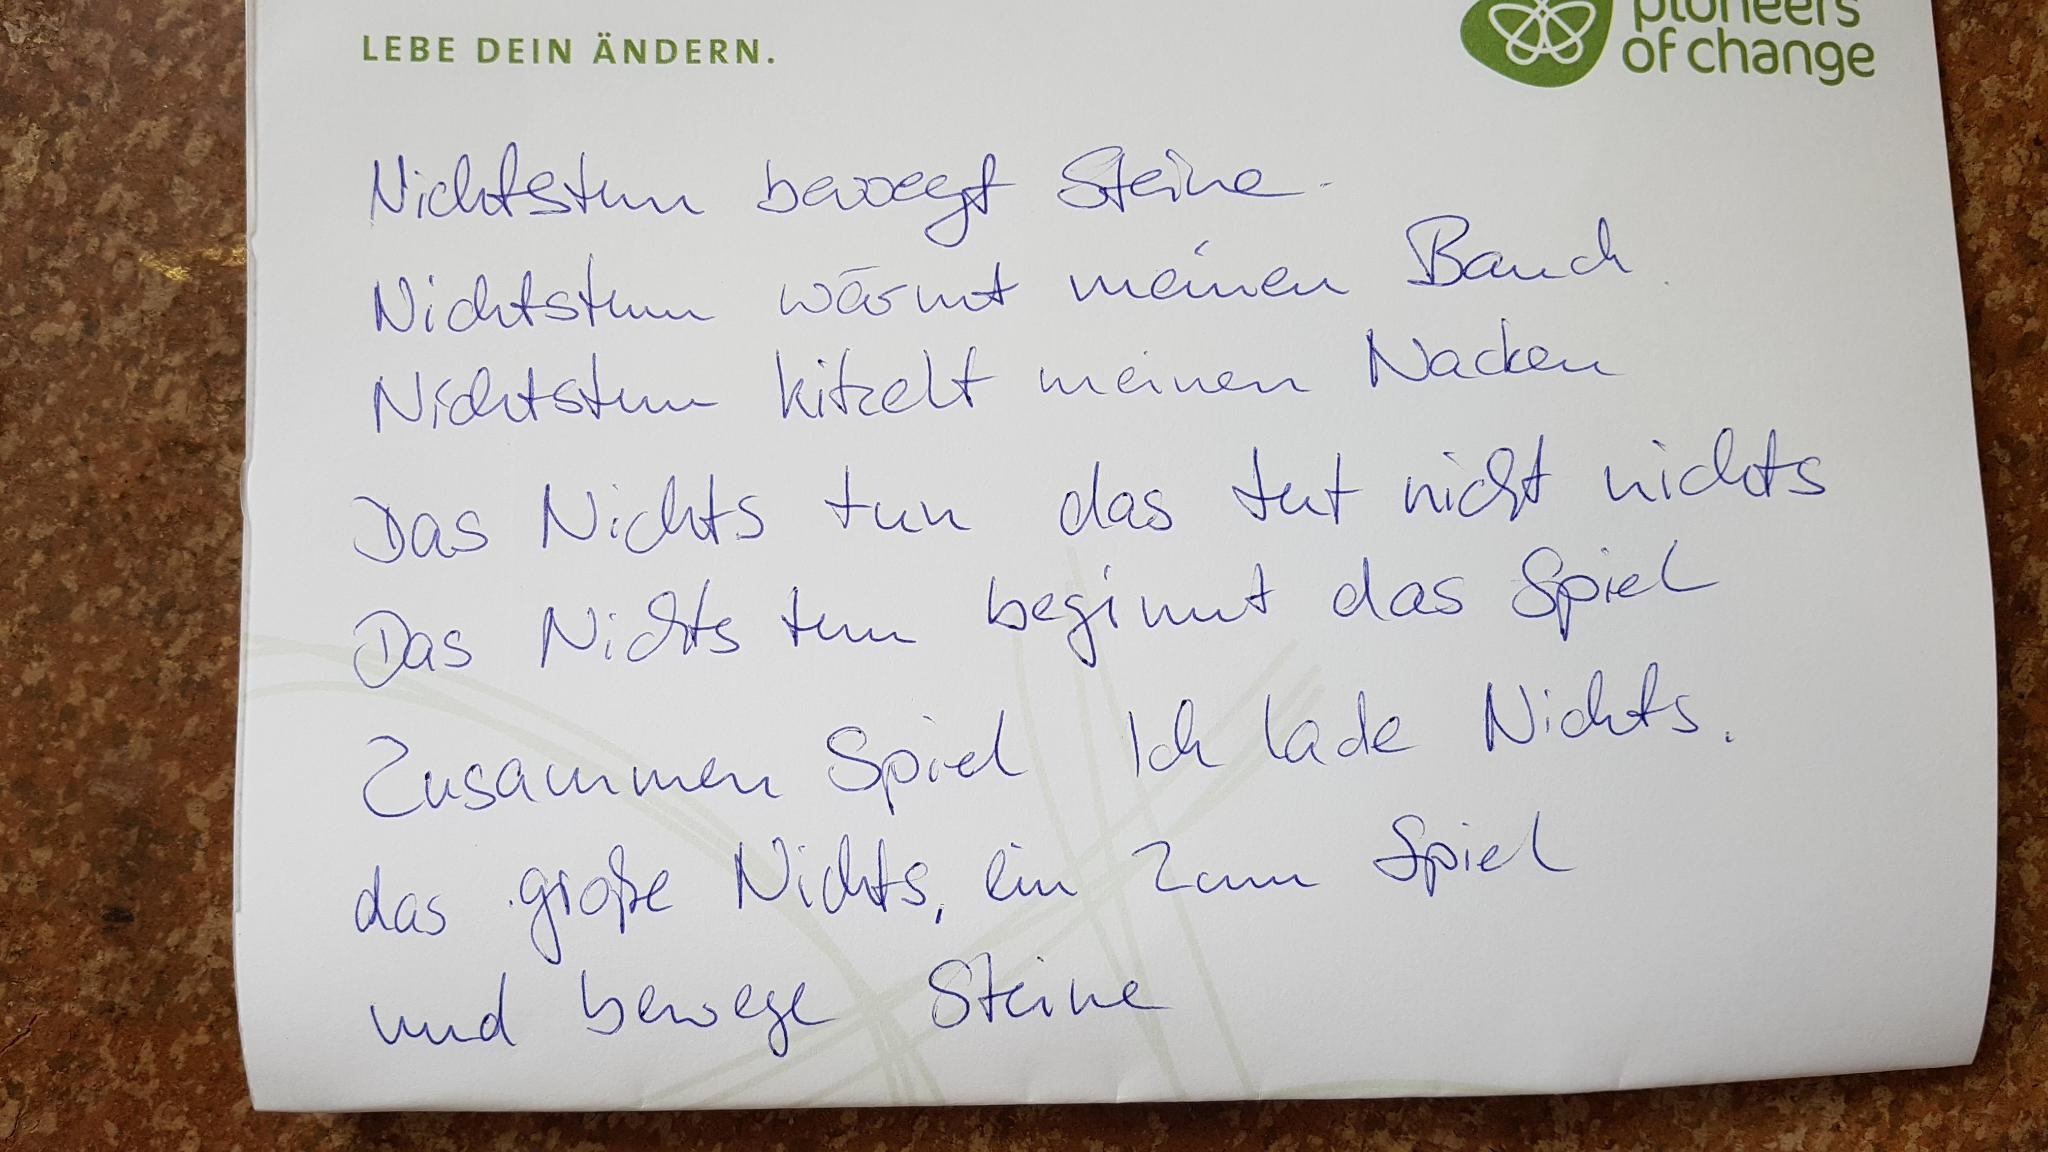 LEBE DEIN ÄNDERN.
pioneers
of change
Nichtstun bewegt Steine.
Nichtstun wärmt meinen Bauch.
Nichtstun kitzelt meinen Nacken
Das Nichts tun das tut nicht nichts
Das Nichts tun beginnt das Spiel
Zusammen Spiel Ich lade Nichts.
das große Nichts, ein zum Spiel
und bewege Steine